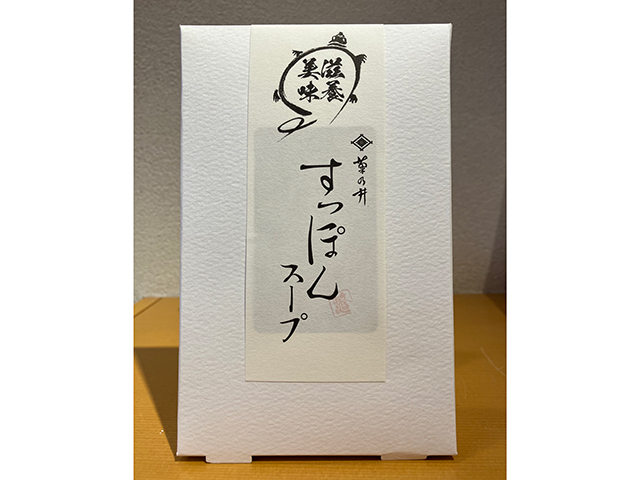 滋養
美味
菊の井
すっぽん
スープ